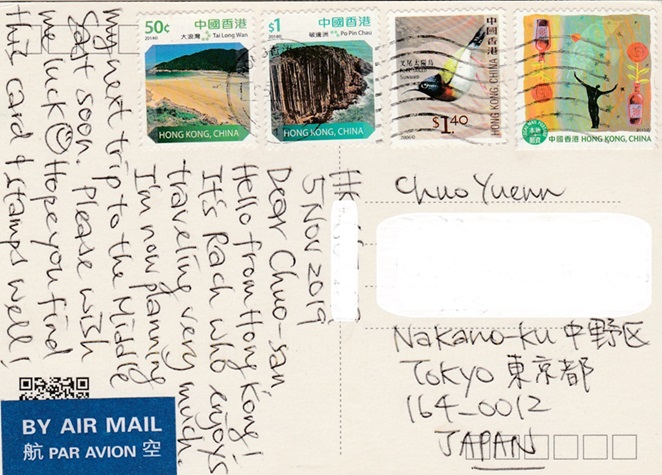 50¢ 中國香港
大浪灣 Tai Long Wan
HONG KONG, CHINA
$1 中國香港
破邊洲 Po Pin Chau
HONG KONG, CHINA
中國香港
HONG KONG, CHINA
叉尾太陽鳥
$1.40
中國香港 HONG KONG, CHINA
5 Nov 2019
Dear Chuo-san,
Hello from Hong Kong!
It's Rach who enjoys
traveling very much.
I'm now planning
my next trip to the Middle
East soon. Please wish
me luck ☺ Hope you find
this card & stamps well!
Chuo Yuenn
Nakano-ku 中野区
Tokyo 東京都
164-0012
JAPAN
BY AIR MAIL
航 PAR AVION 空